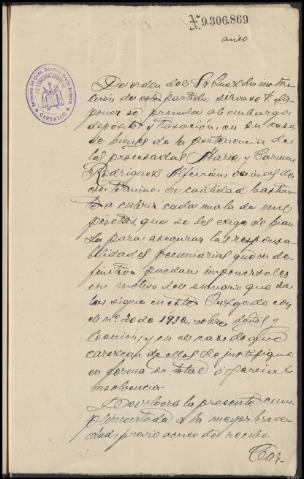 N.9.306.869
CARBALLO
De orden del Sr Juez de instruc-
ción de este partido sirvase V. dis-
poner se proceda al embargo
depósito y tasación, en su caso,
de bienes de la pertenencia
de las procesadas Maria y Carmen
Rodriguez vecinas de
ese término en cantidad bastan-
te a cubrir cada una la de mil
pesetas que se les exige de fian-
za para asegurar las responsa-
bilidades pecuniarias que en de-
finitiva puedan imponerseles
con motivo del sumario que se
las sigue en este Juzgado con
el nº de 1932, sobre daños y
coacción, y en el caso de que
carezcan de ellos se justifique
en forma su total o parcial
insolvencia.
Devolverá la presente cum-
plimentada a la mayor breve-
dad, previo acuse del recibo.